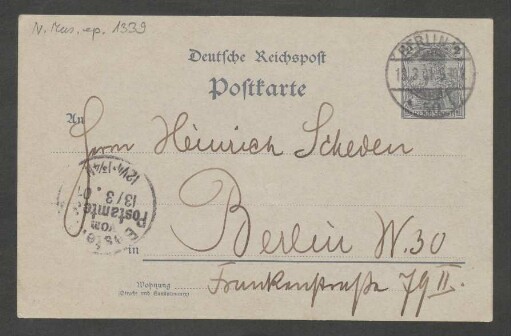 N. Mus. ep. 1339
Deutsche Reichspost
Postkarte
BERLIN
An
Herrn Heinrich Scheden
12¼-1¾N
13/3
Postamte
vom
Berlin W. 30
in
Wohnung
(Straße und Hausnummer)
Frankenstraße 79 II.